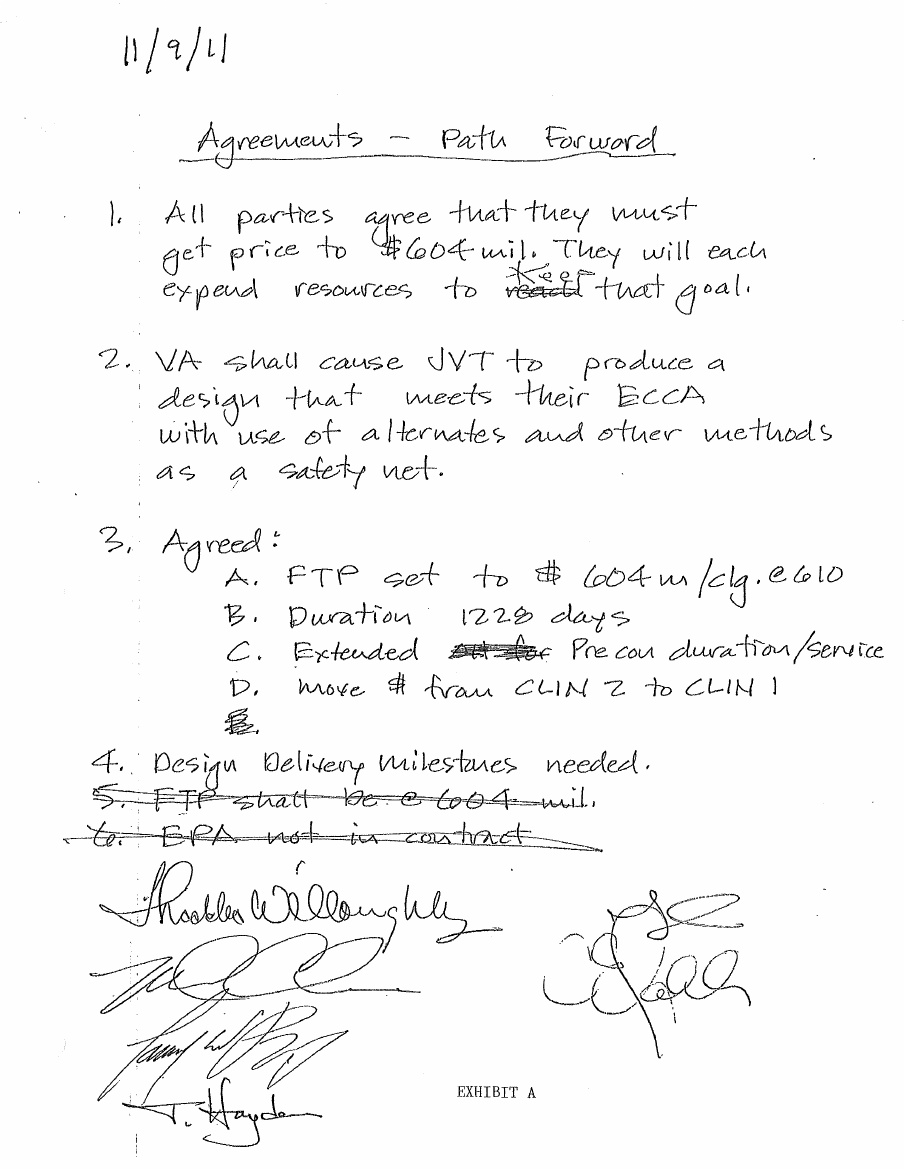 11/9/11
Agreements - Path Forward
1. All parties agree that they must
get price to $604 mil. They will each
keep
expend resources to reach that goal.
2. VA shall cause JVT to produce a
design that meets their ECCA
with use of alternates and other methods
as a safety net.
3. Agreed:
A. FTP set to $ 604m/clg. @ 610
B. Duration 1228 days
C. Extended Precon duration/service
D. move $ from CLIN 2 to CLIN 1
E.
4. Design Delivery Milestones needed.
5. FTP shall be @ 604 mil.
6. EPA not in contract
Willoughby
T. Hayden
EXHIBIT A